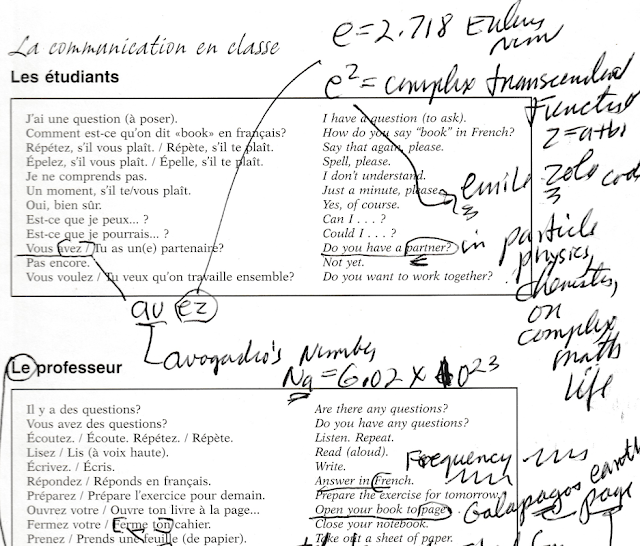 La communication en classe
e=2.718 Eulers Num
e²= complex transcendental
Function
z=a+bi
Les étudiants
J'ai une question (à poser). I have a question (to ask).
Comment est-ce qu'on dit «book» en français? How do you say "book" in French?
Répétez, s'il vous plaît. / Répète, s'il te plaît. Say that again, please.
Épelez, s'il vous plaît. / Épelle, s'il te plaît. Spell, please.
Je ne comprends pas. I don't understand.
Un moment, s'il te/vous plaît. Just a minute, please.
Oui, bien sûr. Yes, of course.
Est-ce que je peux... ? Can I . . . ?
Est-ce que je pourrais... ? Could I . . . ?
Vous avez / Tu as un(e) partenaire? Do you have a partner?
Pas encore. Not yet.
Vous voulez / Tu veux qu'on travaille ensemble? Do you want to work together?
emile zola code
3 3
in particle
physics,
chemistry,
on
complex
math
life
av ez
avogadro's Number
Na=6.02 x 10²³
Le professeur
Il y a des questions? Are there any questions?
Vous avez des questions? Do you have any questions?
Écoutez. / Écoute. Répétez. / Répète. Listen. Repeat.
Lisez / Lis (à voix haute). Read (aloud).
Écrivez. / Écris. Write.
Répondez / Réponds en français. Answer in French.
Préparez / Prépare l'exercice pour demain. Prepare the exercise for tomorrow.
Ouvrez votre / Ouvre ton livre à la page... Open your book to page . . .
Fermez votre / Ferme ton cahier. Close your notebook.
Prenez / Prends une feuille (de papier). Take out a sheet of paper.
Frequency
Galapagos earth
page